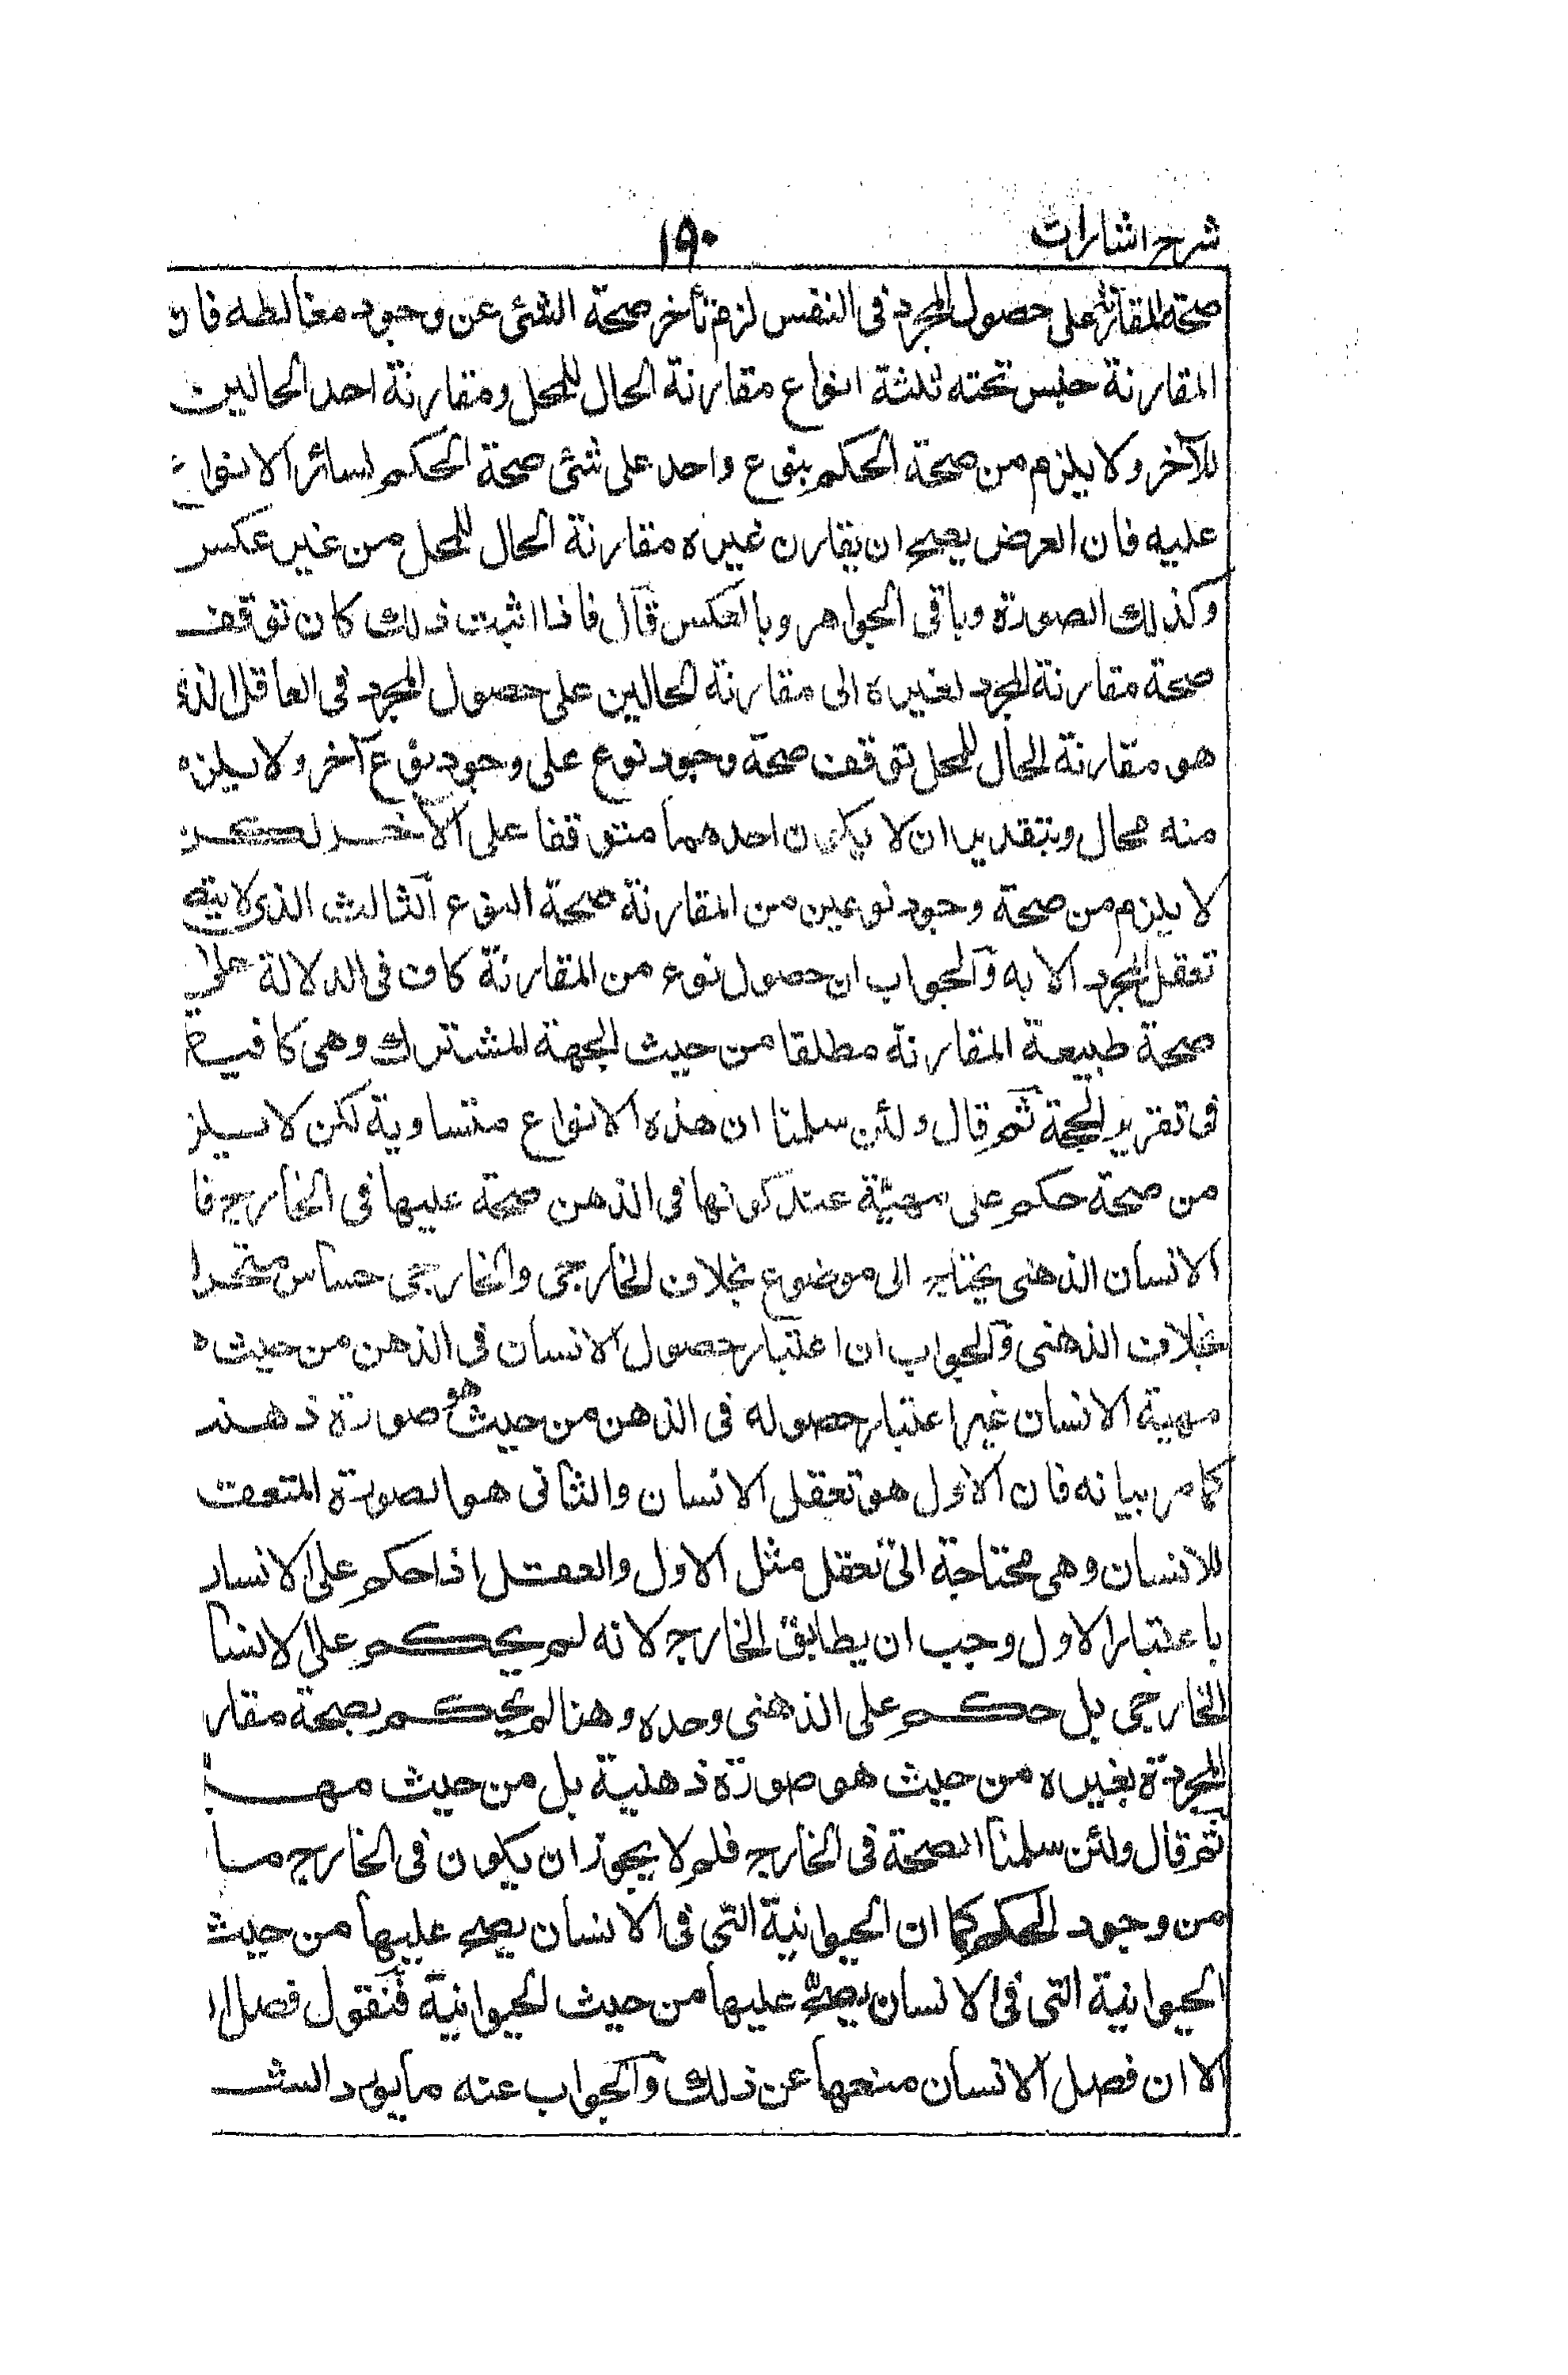 شرح اشارات ١٩٠
صحة المقارنة على حصول المجرد فى النفس لزم تأخر صحة الشئ عن وجود مغالطه فان
المقارنة جنس تحته ثلثة انواع مقارنة الحال للمحل ومقارنة احد الحالين
للآخر ولا يلزم من صحة الحكم بنوع واحد على شئ صحة الحكم لسائر الانواع
عليه فان العرض يصح ان يقارن غيره مقارنة الحال للمحل من غير عكس
وكذلك الصورة وباقى الجواهر وبالعكس قال فاذا اثبت ذلك كان توقف
صحة مقارنة المجرد لغيره الى مقارنة الحالين على حصول المجرد فى العاقل الذى
هو مقارنة الحال للمحل توقف صحة وجود نوع على وجود نوع آخر ولا يلزم
منه محال وبتقدير ان لا يكون احدهما متوقفا على الآخر لكن
لا يلزم من صحة وجود نوعين من المقارنة صحة النوع الثالث الذى لا يتم
تعقل المجرد الا به والجواب ان حصول نوع من المقارنة كاف فى الدلالة على
صحة طبيعة المقارنة مطلقا من حيث الجهة المشترك وهى كافية
فى تقرير الحجة ثم قال ولئن سلمنا ان هذه الانواع متساوية لكن لا يلز
من صحة حكم على مهية عند كونها فى الذهن صحة عليها فى الخارج فا
الانسان الذهنى يحتاج الى موضوع بخلاف الخارجى والخارجى حساس متحرا
بخلاف الذهنى والجواب ان اعتبار حصول الانسان فى الذهن من حيث ه
مهية الانسان غير اعتبار حصوله فى الذهن من حيث هو صورة ذهنـ
كما مر بيانه فان الاول هو تعقل الانسان والثانى هو الصورة المتعقـ
للانسان وهى محتاجة الى تعقل مثل الاول والعقل اذا حكم على الانسان
باعتبار الاول وجب ان يطابق الخارج لانه لم يحكم على الانسا
الخارجى بل حكم على الذهنى وحده وهنا لم يحكم بصحة مقار
المجردة بغيره من حيث هو صورة ذهنية بل من حيث مهيـ
ثم قال ولئن سلمنا الصحة فى الخارج فلم لا يجوز ان يكون فى الخارج ما
من وجود الحكم كما ان الحيوانية التى فى الانسان يصح عليها من حيث
الحيوانية التى فى الانسان يصح عليها من حيث الحيوانية فنقول فصل ا
الا ان فصل الانسان منعها عن ذلك والجواب عنه ما يورد الشـ